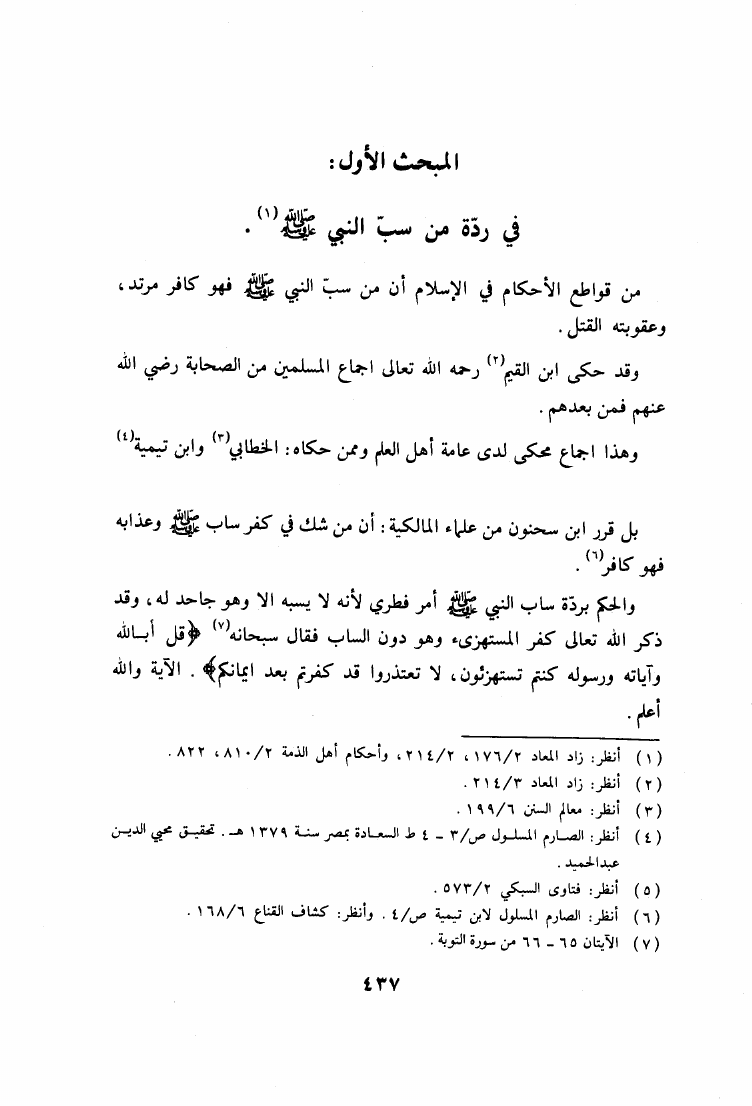 المبحث الأول:
في ردّة من سبّ النبي ﷺ(١).
من قواطع الأحكام في الإسلام أن من سبّ النبي ﷺ فهو كافر مرتد،
وعقوبته القتل.
وقد حكى ابن القيم(٢) رحمه الله تعالى اجماع المسلمين من الصحابة رضي الله
عنهم فمن بعدهم.
وهذا اجماع محكى لدى عامة أهل العلم وممن حكاه: الخطابي(٣) وابن تيمية(٤)
بل قرر ابن سحنون من علماء المالكية: أن من شك في كفر ساب ﷺ وعذابه
فهو كافر(٦).
والحكم بردّة ساب النبي ﷺ أمر فطري لأنه لا يسبه الا وهو جاحد له، وقد
ذكر الله تعالى كفر المستهزىء وهو دون الساب فقال سبحانه(٧) ﴿قل أبـالله
وآياته ورسوله كنتم تستهزئون، لا تعتذروا قد كفرتم بعد ايمانكم﴾. الآية والله
أعلم.
(١) أنظر: زاد المعاد ١٧٦/٢، ٢١٤/٢، وأحكام أهل الذمة ٨١٠/٢، ٨٢٢.
(٢) أنظر: زاد المعاد ٢١٤/٣.
(٣) أنظر: معالم السنن ١٩٩/٦.
(٤) أنظر: الصارم المسلول ص/٣ - ٤ ط السعادة بمصر سنة ١٣٧٩ هـ. تحقيق محيي الدين
عبدالحميد.
(٥) أنظر: فتاوى السبكي ٥٧٣/٢.
(٦) أنظر: الصارم المسلول لابن تيمية ص/٤. وأنظر: كشاف القناع ١٦٨/٦.
(٧) الآيتان ٦٥ - ٦٦ من سورة التوبة.
٤٣٧